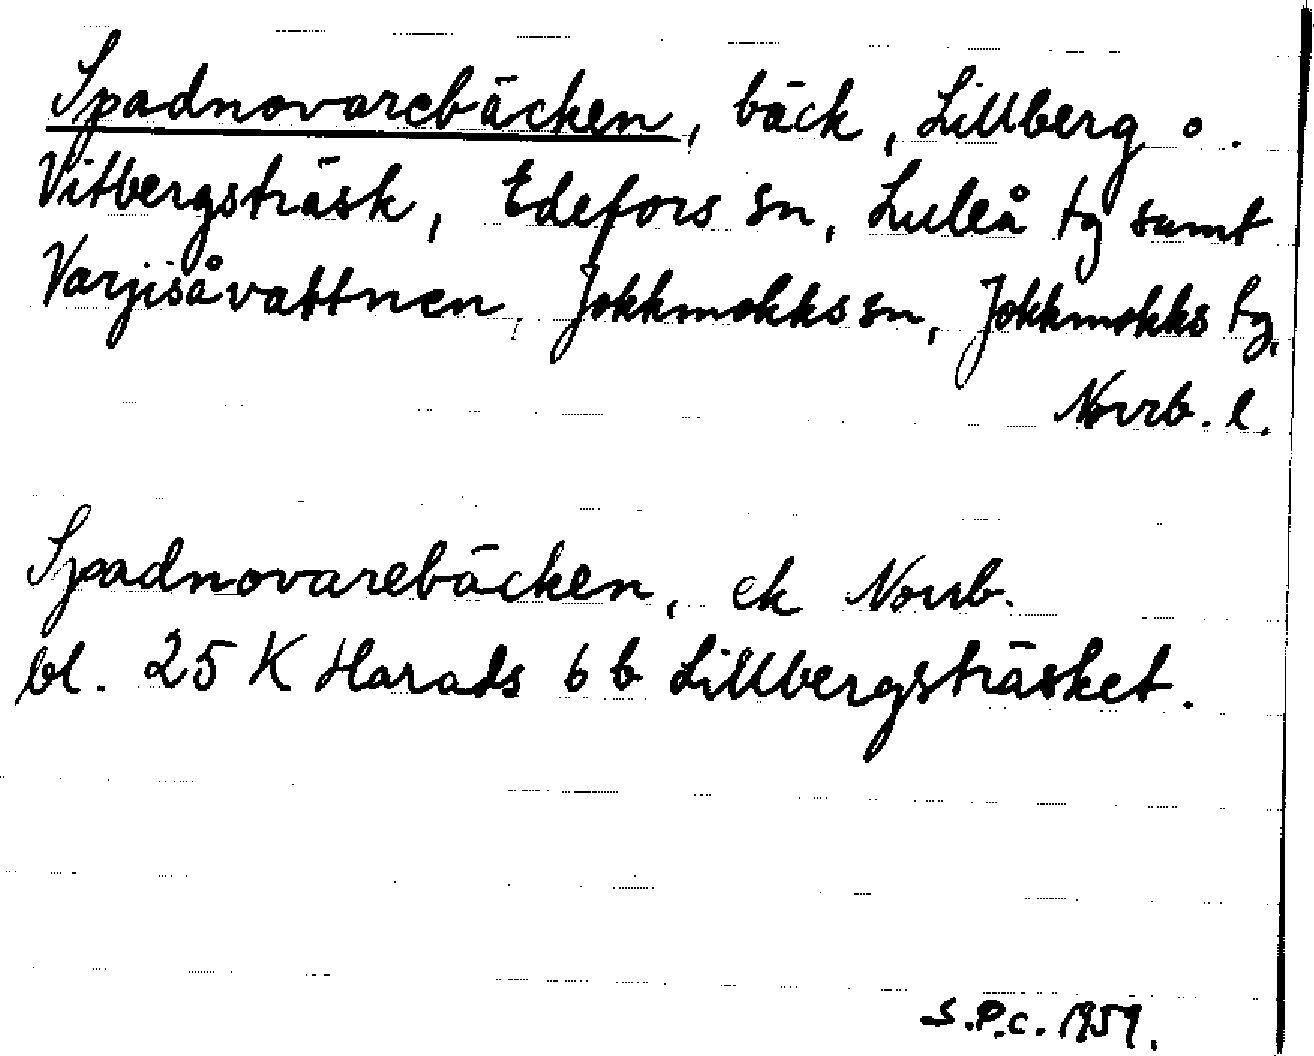 Spadnovarebäcken, bäck, Lillberg o.
Vitbergsträsk, Edefors sn, Luleå tg samt
Varjisåvattnen, Jokkmokks sn, Jokkmokks tg,
Norrb. l.
Spadnovarebäcken, ek Norrb.
bl. 25 K Harads 6 b Lillbergsträsket.
S.P.C. 1959.